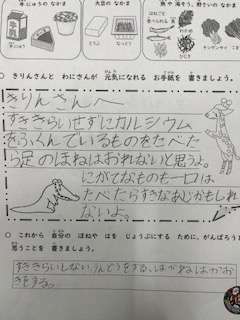 牛にゅうの なかま
大豆の なかま
魚や 海そう、野さいの なかま
牛にゅう
とうふ
なっとう
チンゲンサイ
○ きりんさんと わにさんが 元気になれる お手紙を 書きましょう。
きりんさんへ
すききらいせずにカルシウム
をふくんでいるものをたべた
ら足のほねはおれないと思うよ。
にがてなものも一口は
たべたらすきなあじかもしれ
ないよ。
○ これから 自分の ほねや はを じょうぶにする ために、がんばろうと
思うことを 書きましょう。
すききらいしないうんどうをする、はがぬけはがお
きをする。